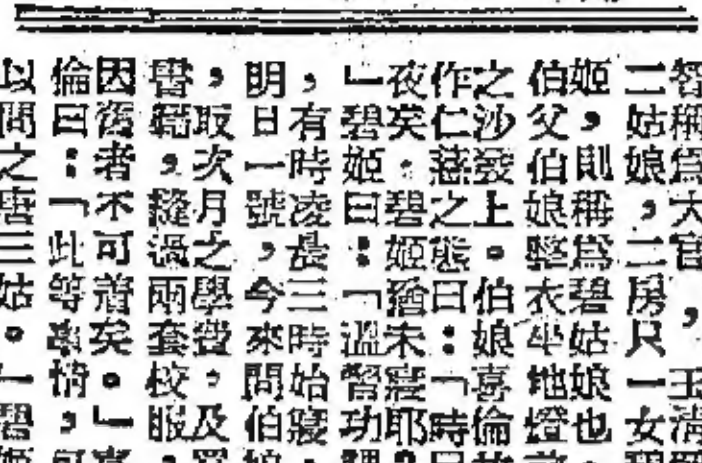 智稱爲大官,王清
二姑娘,二房只一女碧
姬,則稱爲碧姑娘也。
伯父伯娘整衣坐地燈前
之沙發上。伯娘喜倫
作仁慈之態曰:「時
夜矣。碧姬猶未寢耶?
」碧姬曰:「溫習功課
,有時凌晨三時始寢。
明日一號,今來問伯娘
,取次月之學費,及
書籍,縫過兩套校服,
因舊者不可着矣。」
倫曰:「此等事情,可
以問之唐三姑。」碧姬